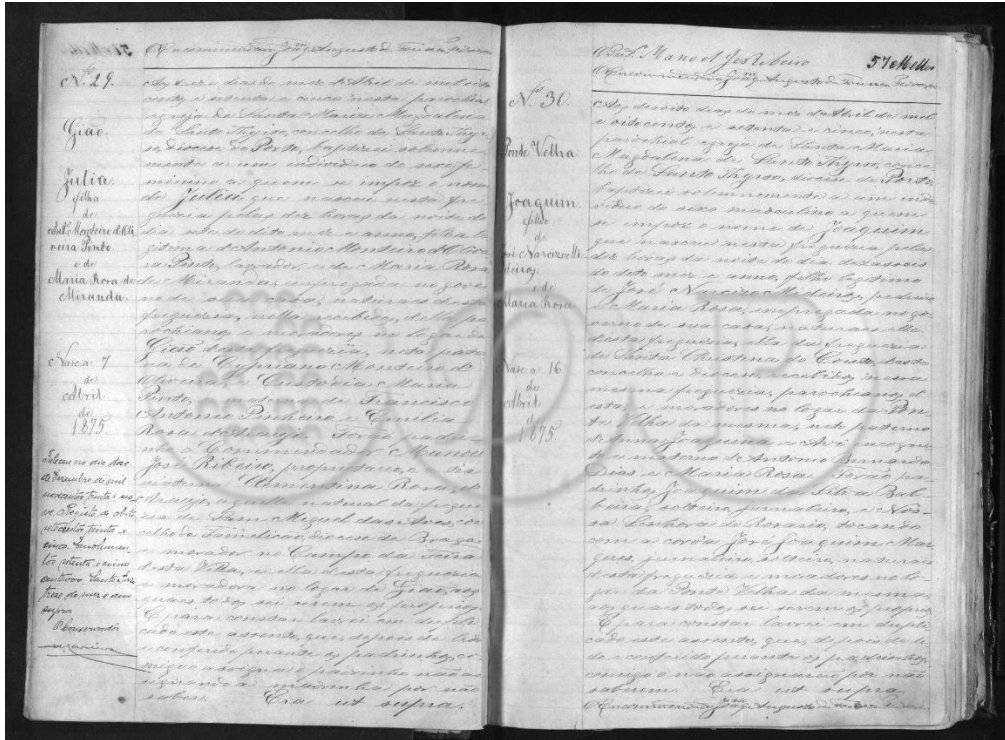 O Encommendado João Augusto de
Nº 29.
Gião.
Julia.
filha
de
Antº Monteiro d'Oli
veira Pinto
e de
Maria Rosa de
Miranda.
Nasc. a 7
de
Abril
de
1875.
Falleceu no dia doze
de Dezembro de mil
novecentos trinta e no
ve. Registo de obito
trinta e
cinco.
Santo
treze do mez e anno
supra
O Conservador
dias do mez d'Abril de mil oito
centos e setenta e cinco, nesta parochial
egreja de Santa Maria Magdalena
de Santo Thyrso, concelho de Santo Thyr
so, diocese do Porto, baptizei solemne
mente a um individuo do sexo fe
minino a quem se impoz o nome
de Julia que nasceu nesta fre
guezia pelas dez horas da noite do
dia sete do dito mez e anno, filha le
gitima d'Antonio Monteiro d'Olivei
ra Pinto, lavrador, e de Maria Rosa
de Miranda, empregada no gover
no de sua casa, naturaes desta
freguezia, nella recebidos, della pa
rochianos e moradores no logar de
Gião desta freguezia, neta pater
na de Cypriano Monteiro d'
Oliveira e Custodia Maria
Pinto, e materna de Francisco
Antonio Pinheiro e Emilia
Rosa de Araujo. Forão padri
nhos o Commendador Manoel
José Ribeiro, proprietario, e a tia
materna Clementina Rosa d'
Araujo, aquelle natural da fregue
zia de Sam Miguel das Aves, con
celho de Famelicão, diocese de Braga,
e morador no Campo da Feira
desta Villa, e ella desta freguezia
e moradora no logar de Gião, aos
quaes todos sei serem os proprios.
E para constar lavrei em dupli
cado este assento, que, depois de lido
e conferido perante os padrinhos, co
migo assigna o padrinho não as
signando a madrinha por não
saber. Era ut supra.
O Pad. Manoel José Ribeiro
57 Mello
O Encommendado João Augusto de
Nº 30.
Ponte Velha
Joaquim.
filho
de
José Narcizo Me
deiros
e de
Maria Rosa
Nasc. a 16
de
Abril
de
1875.
Aos dezoito dias do mez d'Abril de mil
e oitocentos e setenta e cinco, nesta
parochial egreja de Santa Maria
Magdalena de Santo Thyrso, conce
lho de Santo Thyrso, diocese do Porto
baptizei solemnemente a um indi
viduo do sexo masculino a quem
se impoz o nome de Joaquim
que nasceu nesta freguezia pelas
dez horas da noite do dia dezasseis
do dito mez e anno, filho legitimo
de José Narcizo Medeiros, pedreiro
e Maria Rosa, empregada no go
verno de sua casa, naturaes elle
desta freguezia, ella da freguezia
de Santa Christina do Couto, deste
concelho e diocese, recebidos nessa
mesma freguezia, parochianos d'
esta, e moradores no logar da Pon
te Velha da mesma, neto paterno
de Anna Joaquina e Avô incognito
e materno d'Antonio Bernardo
Dias e Maria Rosa. Forão pa
drinhos Joaquim da Silva Bar
boza, solteiro, jornaleiro, e Nos
sa Senhora do Rosario, tocando
com a corôa José Joaquim Mar
ques, jornaleiro, solteiro, naturaes
desta freguezia e moradores no lo
gar da Ponte Velha da mesma,
aos quaes todos sei serem os proprios.
E para constar lavrei em dupli
cado este assento, que, depois de li
do e conferido perante os padrinhos,
comigo o não assignarão por não
saberem. Era ut supra.
O Encommendado João Augusto de